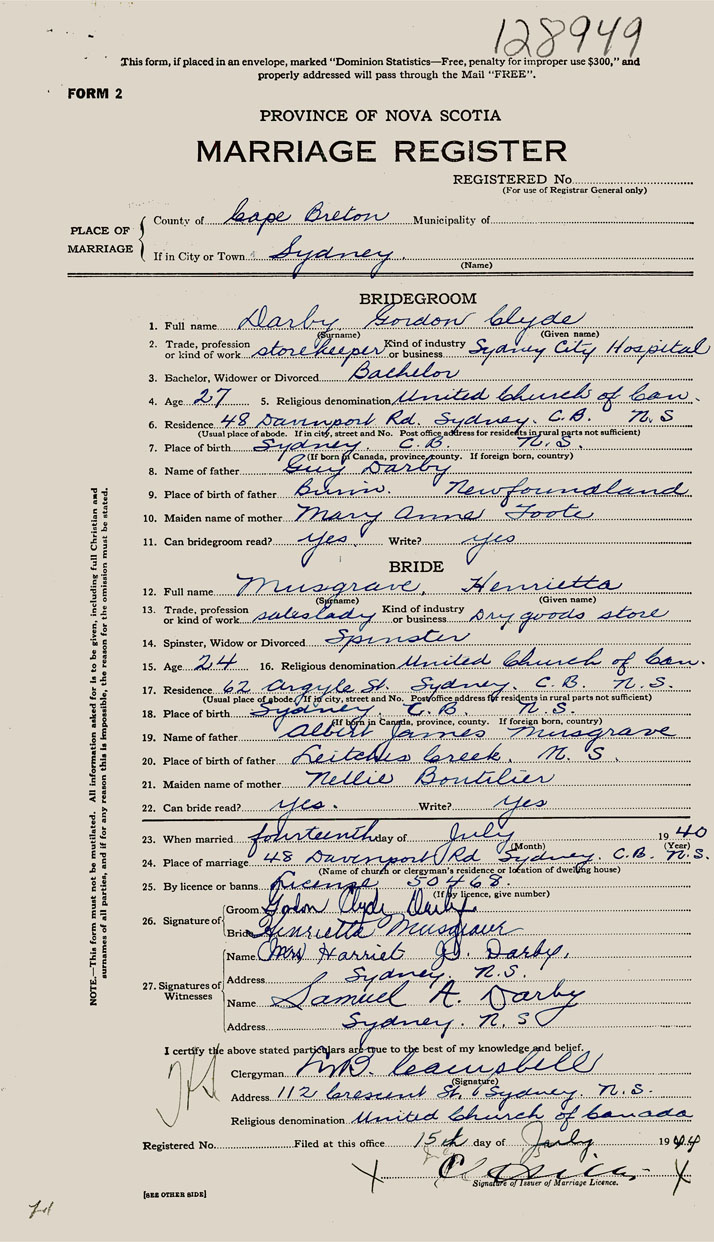 128949
This form, if placed in an envelope, marked "Dominion Statistics—Free, penalty for improper use $300," and
properly addressed will pass through the Mail "FREE".
FORM 2
PROVINCE OF NOVA SCOTIA
MARRIAGE REGISTER
REGISTERED No.
(For use of Registrar General only)
PLACE OF MARRIAGE
County of Cape Breton Municipality of
If in City or Town Sydney.
(Name)
BRIDEGROOM
1. Full name Darby Gordon Clyde
(Surname) (Given name)
2. Trade, profession or kind of work storekeeper Kind of industry or business Sydney City Hospital
3. Bachelor, Widower or Divorced Bachelor
4. Age 27 5. Religious denomination United Church of Can.
6. Residence 48 Davenport Rd. Sydney. C.B. N.S
(Usual place of abode. If in city, street and No. Post office address for residents in rural parts not sufficient)
7. Place of birth Sydney. C.B. N.S.
(If born in Canada, province, county. If foreign born, country)
8. Name of father Guy Darby
9. Place of birth of father Burin. Newfoundland
10. Maiden name of mother Mary Anne Foote
11. Can bridegroom read? yes. Write? yes
BRIDE
12. Full name Musgrave, Henrietta
(Surname) (Given name)
13. Trade, profession or kind of work saleslady Kind of industry or business Dry goods store
14. Spinster, Widow or Divorced Spinster
15. Age 24 16. Religious denomination United Church of Can.
17. Residence 62 Argyle St. Sydney. C.B. N.S.
(Usual place of abode. If in city, street and No. Post office address for residents in rural parts not sufficient)
18. Place of birth Sydney. C.B. N.S.
(If born in Canada, province, county. If foreign born, country)
19. Name of father Albert James Musgrave
20. Place of birth of father Leitches Creek. N.S.
21. Maiden name of mother Nellie Boutilier
22. Can bride read? yes. Write? yes
23. When married fourteenth day of July 1940
(Month) (Year)
24. Place of marriage 48 Davenport Rd Sydney. C.B. N.S.
(Name of church or clergyman's residence or location of dwelling house)
25. By licence or banns License 50468.
(If by licence, give number)
26. Signature of
Groom Gordon Clyde Darby
Bride Henrietta Musgrave
27. Signatures of Witnesses
Name Mrs Harriet Darby,
Address Sydney. N.S.
Name Samuel A. Darby
Address Sydney. N.S
I certify the above stated particulars are true to the best of my knowledge and belief.
Clergyman Campbell
(Signature)
Address 112 Crescent St. Sydney. N.S.
Religious denomination United Church of Canada
Registered No. Filed at this office 15th day of July 19
X X
Signature of Issuer of Marriage Licence.
[SEE OTHER SIDE]
NOTE.—This form must not be mutilated. All information asked for is to be given, including full Christian and
surnames of all parties, and if for any reason this is impossible, the reason for the omission must be stated.